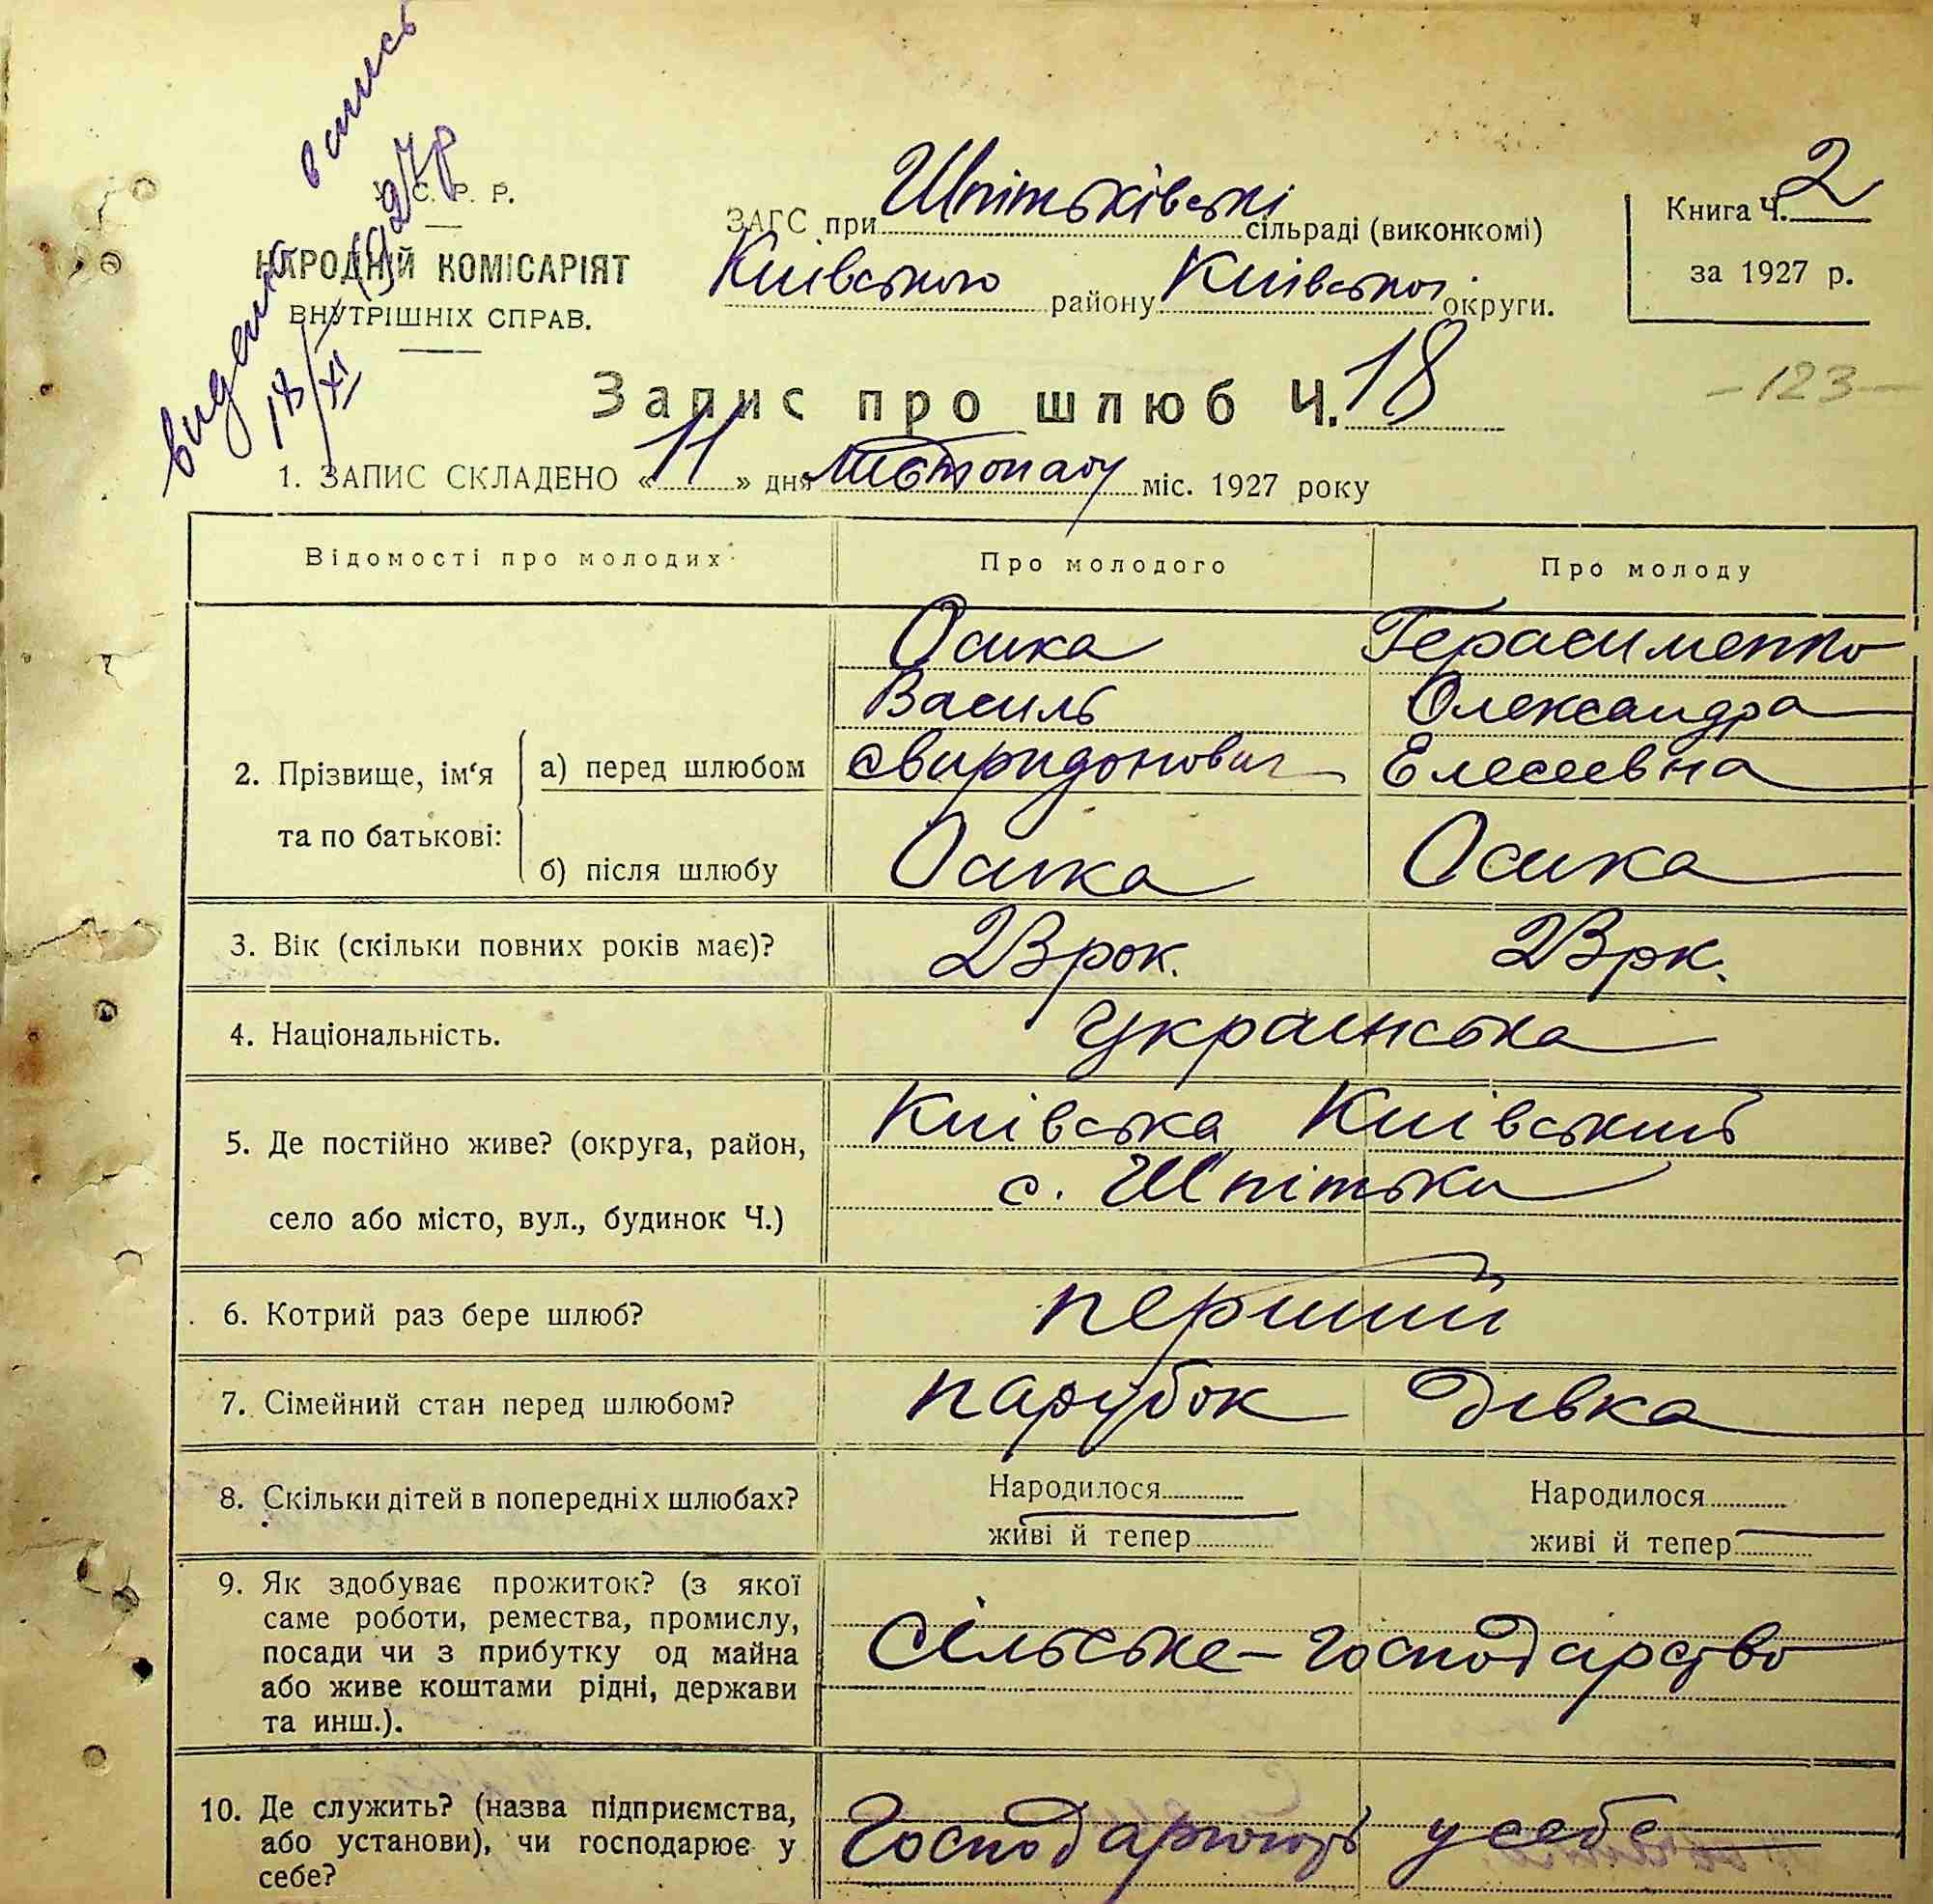 видана впись
18/XI 1927р
У. С. Р. Р.
НАРОДНІЙ КОМІСАРІЯТ
ВНУТРІШНІХ СПРАВ.
ЗАГС при Шпітьківські сільраді (виконкомі)
Київського району Київської округи.
Книга Ч. 2
за 1927 р.
Запис про шлюб Ч. 18
-123-
1. ЗАПИС СКЛАДЕНО «11» дня листопаду міс. 1927 року
Відомості про молодих
Про молодого
Про молоду
2. Прізвище, ім'я та по батькові:
а) перед шлюбом
Осика
Василь
Свиридонович
Герасименко
Олександра
Елесеевна
б) після шлюбу
Осика
Осика
3. Вік (скільки повних років має)?
23 рок.
23 рк.
4. Національність.
Українська
5. Де постійно живе? (округа, район,
село або місто, вул., будинок Ч.)
Київська Київський
с. Шпітьки
6. Котрий раз бере шлюб?
перший
7. Сімейний стан перед шлюбом?
парубок дівка
8. Скільки дітей в попередніх шлюбах?
Народилося
живі й тепер
Народилося
живі й тепер
9. Як здобуває прожиток? (з якої
саме роботи, ремества, промислу,
посади чи з прибутку од майна
або живе коштами рідні, держави
та инш.).
Сільське-господарство
10. Де служить? (назва підприємства,
або установи), чи господарює у
себе?
Господарюють у себе